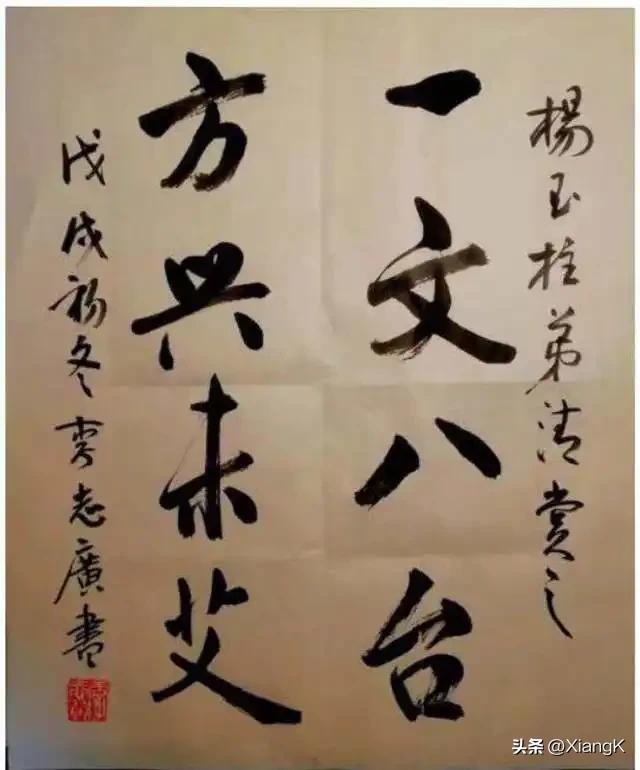 楊玉柱弟清賞之
一文八台
方興未艾
戊戌初冬志廣書
头条 @XiangK